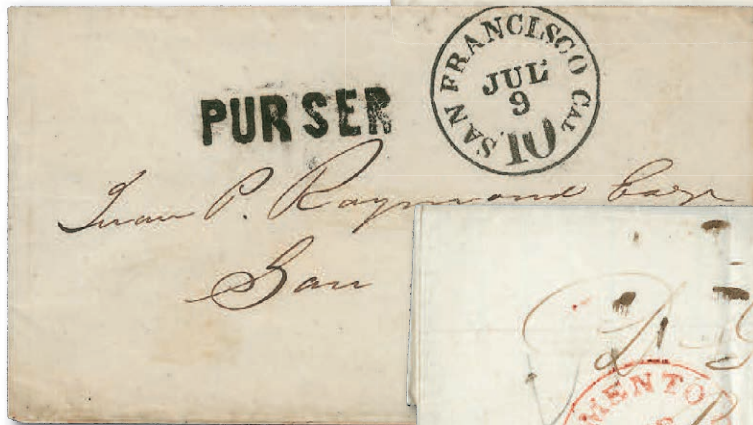 PURSER
SAN FRANCISCO CAL
JUL
9
10
Juan P. Raymond Esqr
San
MENTO